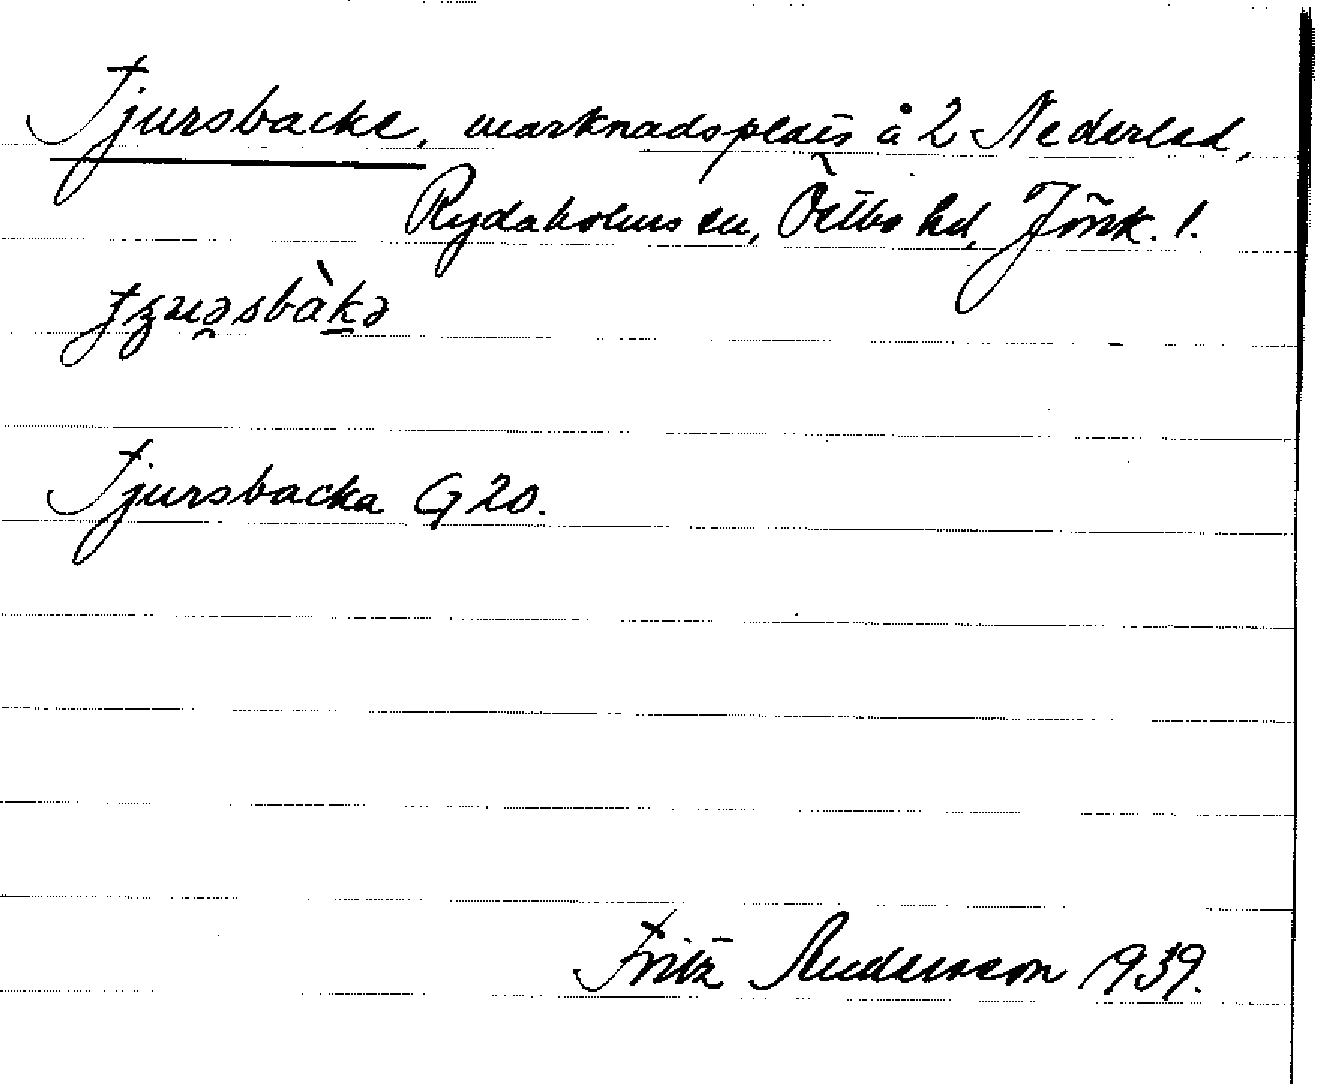 Tjursbacke, marknadsplats å 2 Nederled,
Rydaholms sn, Östbo hd, Jönk. l.
Tjursbacka G 20.
Fritz Andersson 1939.